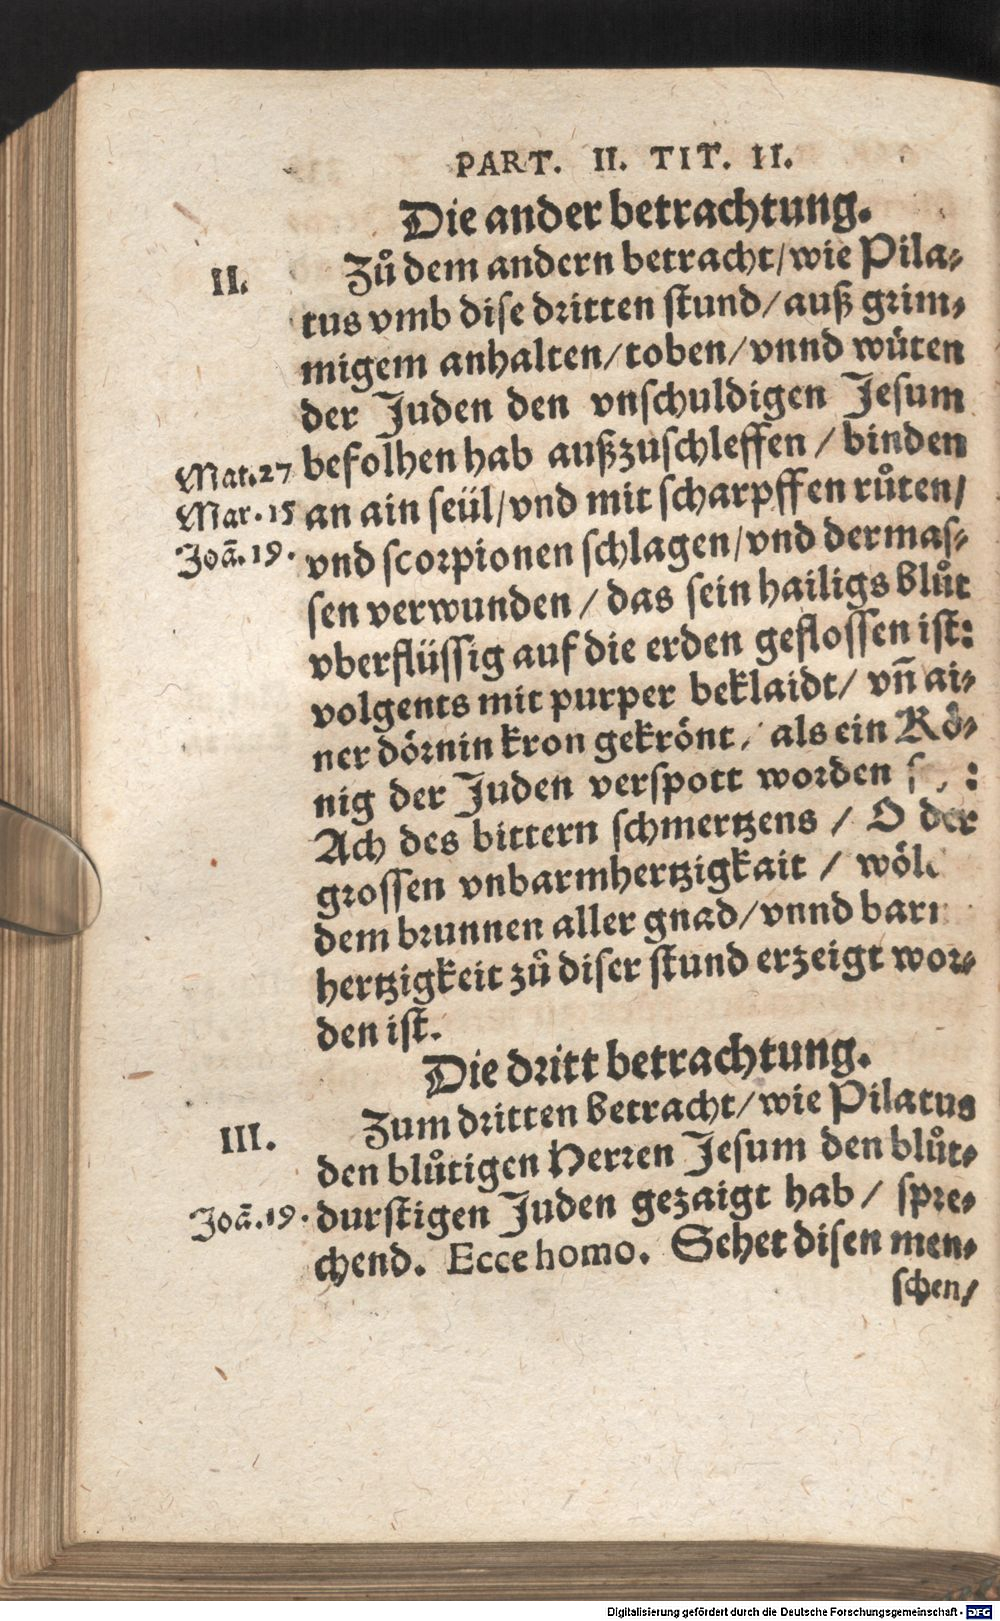 PART. II. TIT. II.
Die ander betrachtung.
II.
Zů dem andern betracht/wie Pila⸗
tus vmb dise dritten stund/auß grim⸗
migem anhalten/toben/vnnd wüten
der Juden den vnschuldigen Jesum
Mat.27 befolhen hab außzuschleffen / binden
Mar.15 an ain seül/vnd mit scharpffen růten/
Joã.19. vnd scorpionen schlagen/vnd dermas⸗
sen verwunden / das sein hailigs blůt
vberflüssig auf die erden geflossen ist:
volgents mit purper beklaidt/ vñ ai⸗
ner dörnin kron gekrönt/ als ein Kö⸗
nig der Juden verspott worden
Ach des bittern schmertzens / O der
grossen vnbarmhertzigkait /
dem brunnen aller gnad/vnnd
hertzigkeit zů diser stund erzeigt wor⸗
den ist.
Die dritt betrachtung.
III.
Zum dritten betracht/wie Pilatus
den blůtigen Herren Jesum den blůt⸗
Joã.19. durstigen Juden gezaigt hab/ spre⸗
chend. Ecce homo. Sehet disen men⸗
schen/
Digitalisierung gefördert durch die Deutsche Forschungsgemeinschaft - DFG